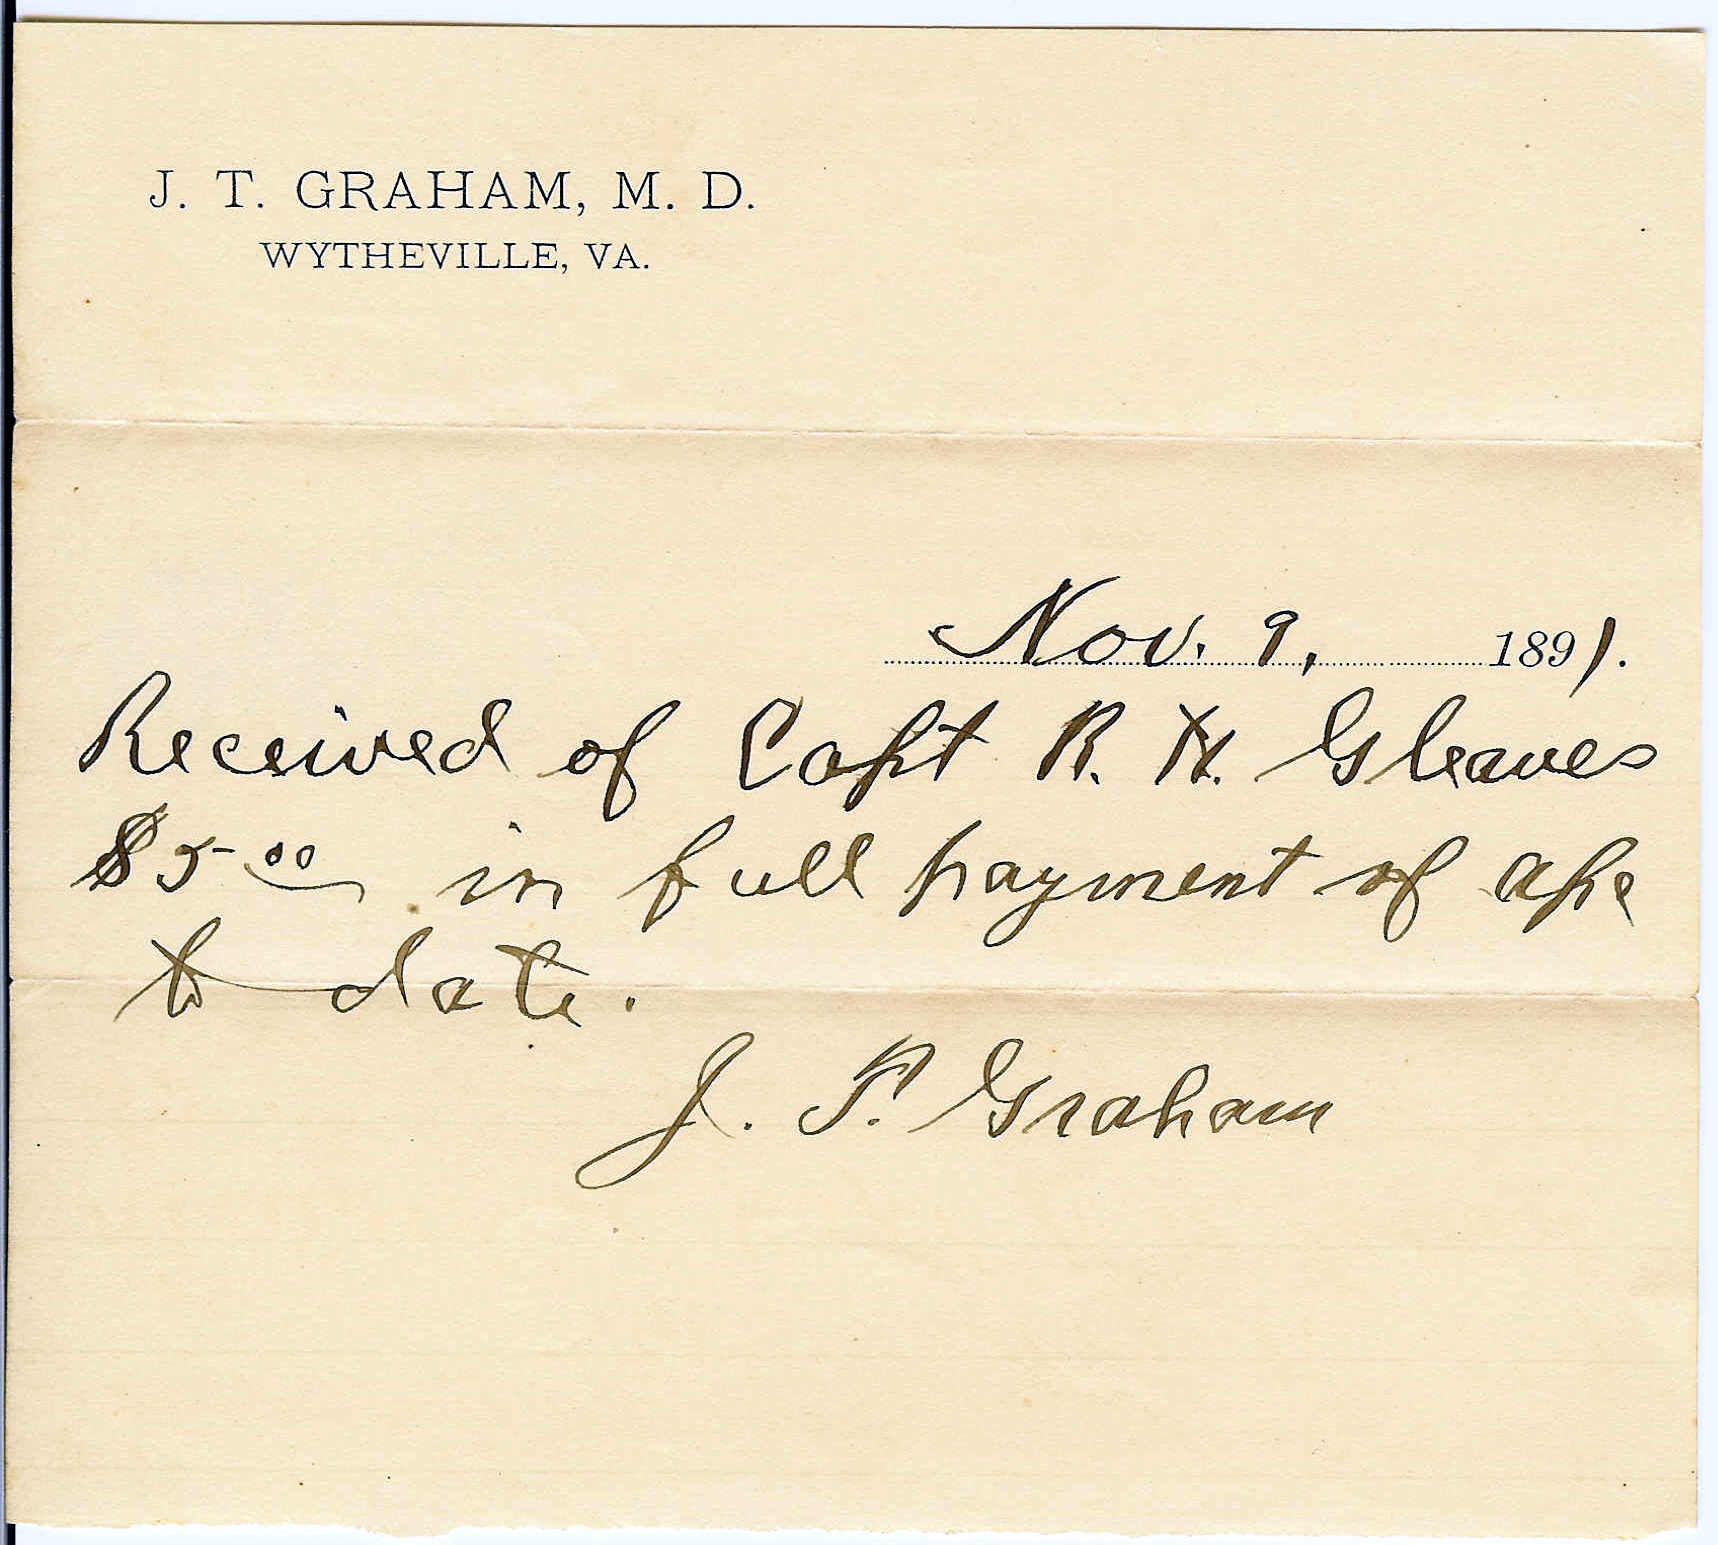 J. T. GRAHAM, M. D.
WYTHEVILLE, VA.
Nov. 9, 1891.
Received of Capt R. H. Gleaves
$5.00 in full payment of
to date.
J. T. Graham